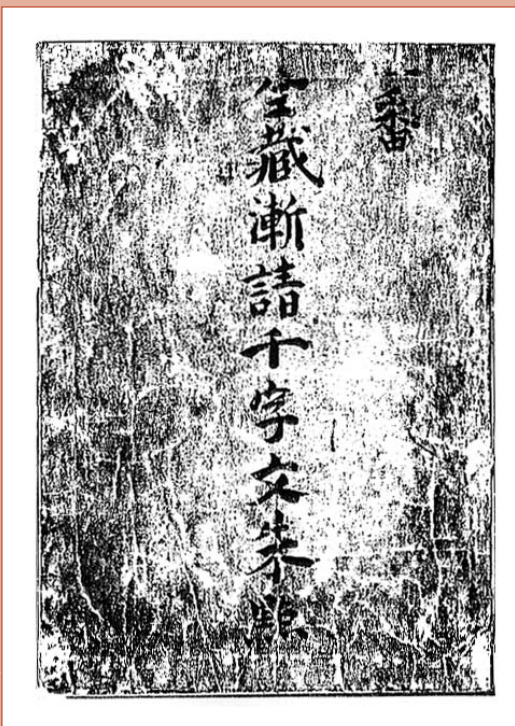 一番
全藏漸請千字文朱點